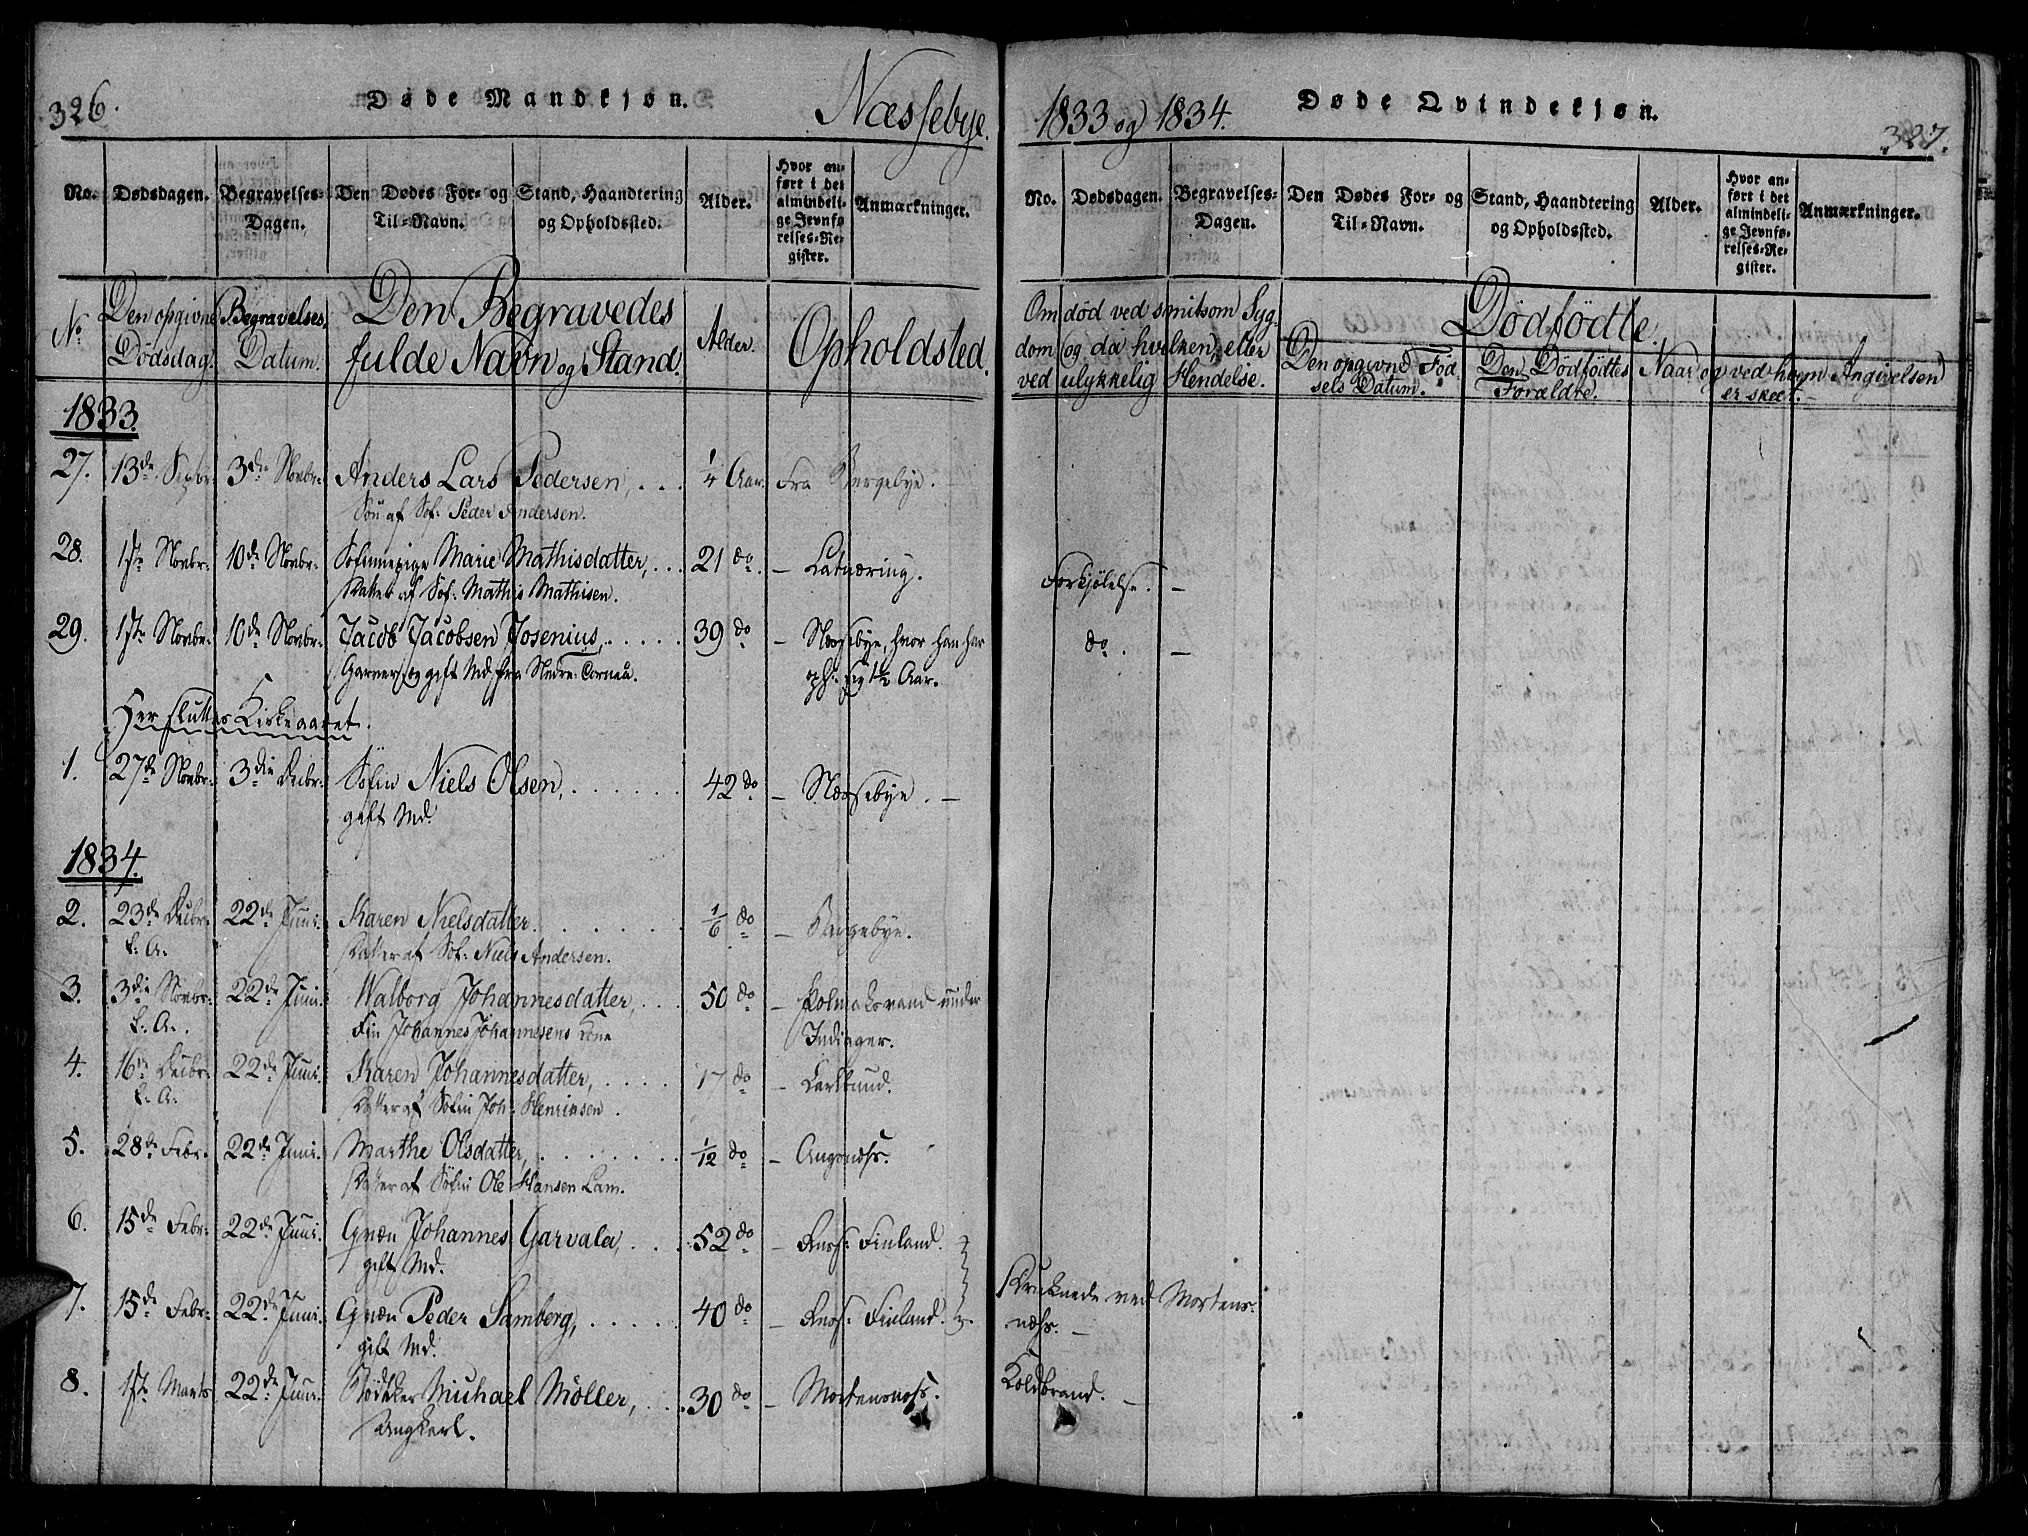 326.
Døde Mandkjøn.
Næssebye.
1833 og 1834.
Døde Qvindekjøn.
327.
No. Dødsdagen. Begravelses-Dagen. Den Dødes For- og Til-Navn. Stand, Haandtering og Opholdssted. Alder. Hvor anført i det almindelige Jevnførelses-Register. Anmærkninger.
No. Dødsdagen. Begravelses-Dagen. Den Dødes For- og Til-Navn. Stand, Haandtering og Opholdssted. Alder. Hvor anført i det almindelige Jevnførelses-Register. Anmærkninger.
No. Den opgivne Dødsdag. Begravelses Datum. Den Begravedes fulde Navn og Stand. Alder. Opholdsted.
Om død ved smitsom Sygdom (og da hvilken), eller ved ulykkelig Hendelse.
Dødfödte.
Den opgivne Fødsels Datum. Den Dødfödtes Forældre. Naar og ved hvem Angivelsen er skeet.
1833.
27. 13de Sepbr. 3die Novbr. Anders Lars Pedersen, . . . 1/4 Aar. Fra Bergebye.
Søn af Søf: Peder Andersen.
28. 1ste Novbr. 10de Novbr. Søfinnepige Marie Mathisdatter, . . . 21 do. – Latnæring. Forkjølelse. –
Datter af Søf: Mathis Mathisen.
29. 1ste Novbr. 10de Novbr. Jacob Jacobsen Josenius, . . . . . 39 do – Næssebye, hvor han har do. –
Garver og gift Md. fra Nedre Torneå. oph: sig 1½ Aar.
Her slutter Kirkeaaret.
1. 27de Novbr. 3die Decbr. Søfin Niels Olsen, . . . . . . 42 do – Næssebye. –
gift Md.
1834.
2. 23de Decbr. 22de Juni. Karen Nielsdatter. . . . . . . 1/6 do –
f: A. Datter af Søf: Niels Andersen.
3. 3die Novbr. 22de Juni. Walborg Johannesdatter, . . . 50 do – Polmaksvand under
f. A. Fin Johannes Johannesens Kone Indiager.
4. 16de Decbr. 22de Juni. Karen Johannesdatter, . . . . 17 do –
f. A. Datter af Søfin Joh: Henriksen.
5. 28de Febr. 22de Juni. Marthe Olsdatter, . . . . . . . 1/12 do – Angsnæss.
Datter af Søfin Ole Hansen Lam.
6. 15de Febr. 22de Juni. Qvæn Johannes Garvala, . . . 52 do – Russ: Finland.
gift Md.
7. 15de Febr. 22de Juni. Qvæn Peder Samberg, . . . . . 40 do – Russ: Finland. Druknede ved Mortens-
gift Md. næss. –
8. 1ste Marts 22de Juni. Bødker Michael Möller, . . . 30 do – Mortensnæss. Koldbrand. –
Ungkarl.